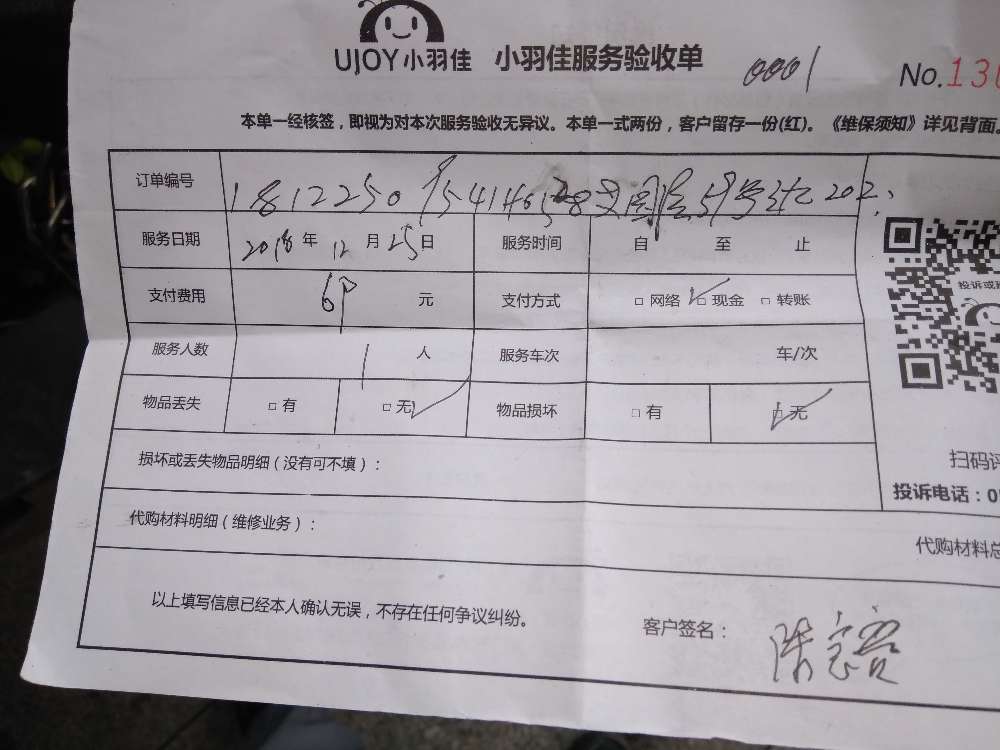 UJOY小羽佳 小羽佳服务验收单 0001 No.130
本单一经核签，即视为对本次服务验收无异议。本单一式两份，客户留存一份(红)。《维保须知》详见背面。
订单编号 1812250
服务日期 2018年12月25日 服务时间 自 至 止
投诉或
支付费用 元 支付方式 □ 网络 □ 现金 □ 转账
服务人数 1 人 服务车次 车/次
物品丢失 □ 有 □ 无 物品损坏 □ 有 □ 无
损坏或丢失物品明细（没有可不填）：
扫码评
投诉电话：0
代购材料明细（维修业务）：
代购材料总
以上填写信息已经本人确认无误，不存在任何争议纠纷。
客户签名：